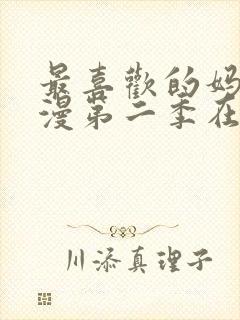 最喜歡的妈
漫第二季在
川添真理子